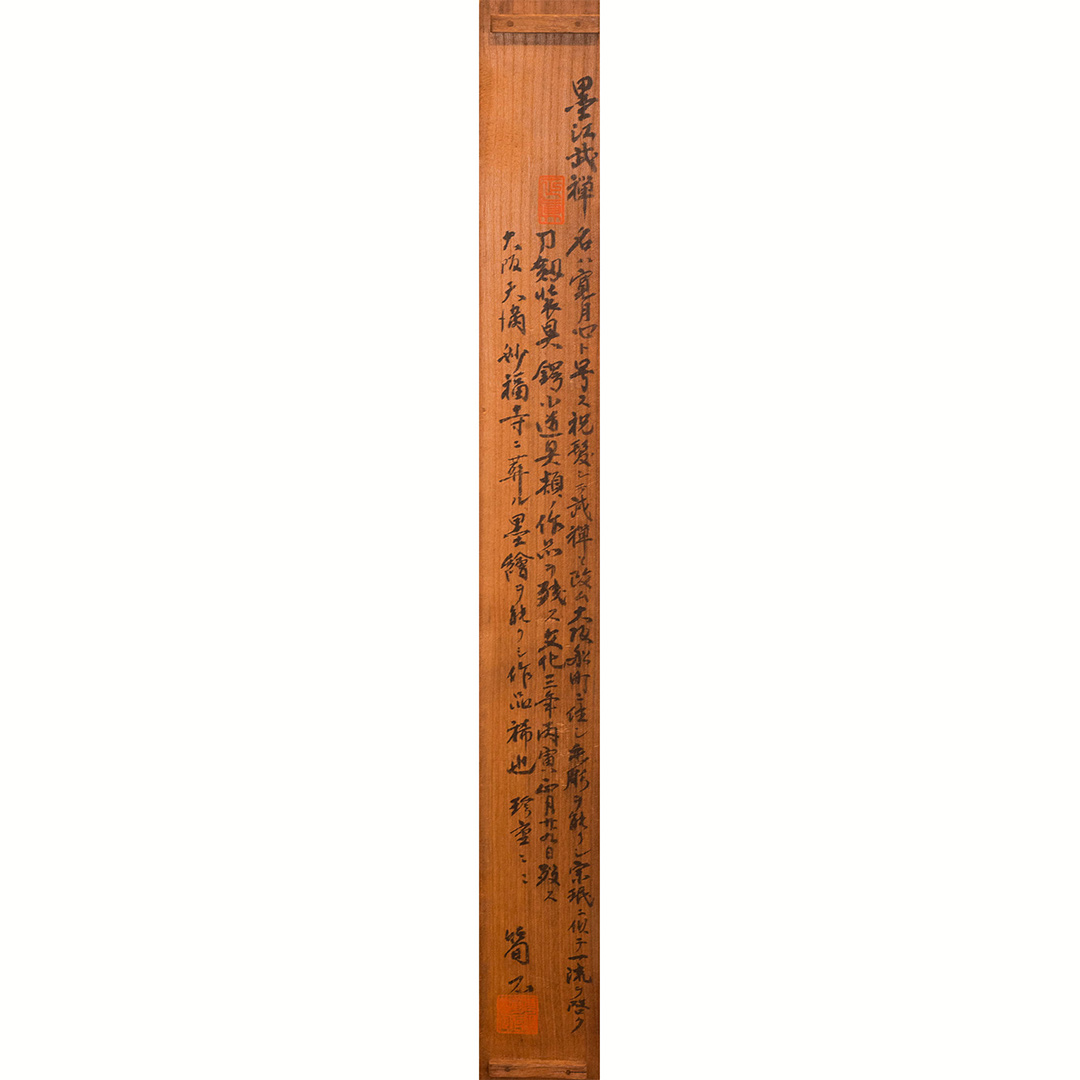 墨江武禅 名ハ寛月心ト号ス祝髪シテ武禅ト改ム大阪船町ニ住シ彫ヲ能クシ宗珉ニ倣テ一流ヲ啓ク
刀劔装具鍔小道具類ノ作品ヲ残ス文化三年丙寅ハ正月廿九日歿ス
大阪天満妙福寺ニ葬ル墨繪ヲ能クシ作品稀也 珍重ミミ
筍石